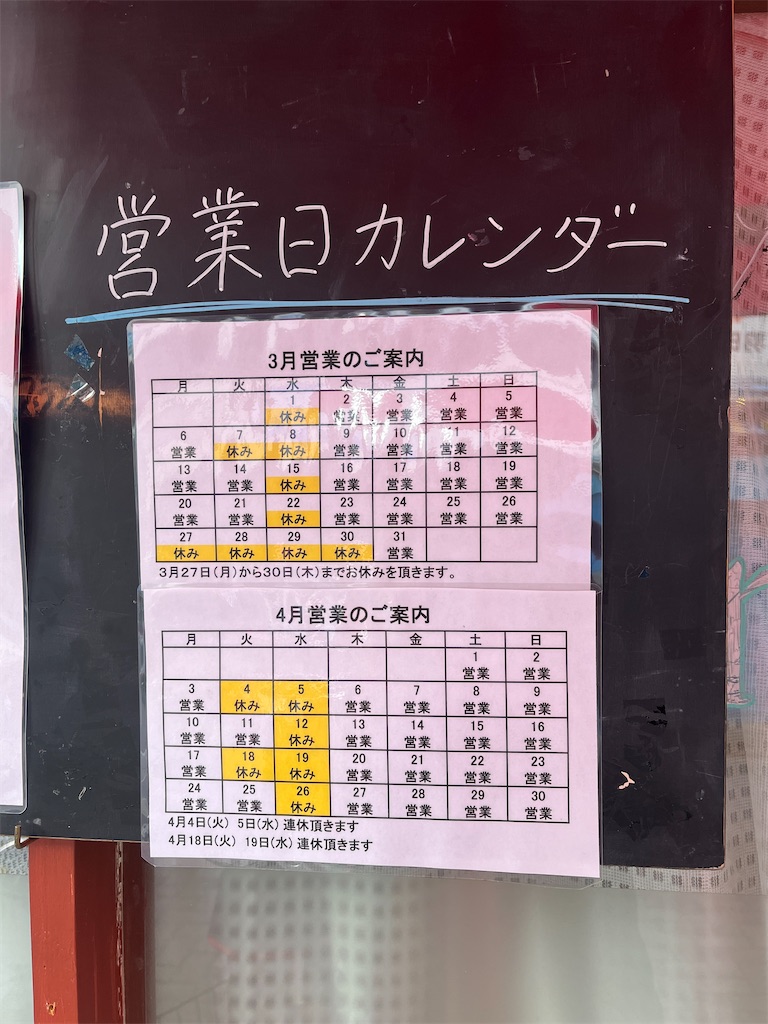 営業日カレンダー
3月営業のご案内
月 火 水 木 金 土 日
1 2 3 4 5
休み 営業 営業 営業 営業
6 7 8 9 10 11 12
営業 休み 休み 営業 営業 営業 営業
13 14 15 16 17 18 19
営業 営業 休み 営業 営業 営業 営業
20 21 22 23 24 25 26
営業 営業 休み 営業 営業 営業 営業
27 28 29 30 31
休み 休み 休み 休み 営業
3月27日(月)から30日(木)までお休みを頂きます。
4月営業のご案内
月 火 水 木 金 土 日
1 2
営業 営業
3 4 5 6 7 8 9
営業 休み 休み 営業 営業 営業 営業
10 11 12 13 14 15 16
営業 営業 休み 営業 営業 営業 営業
17 18 19 20 21 22 23
営業 休み 休み 営業 営業 営業 営業
24 25 26 27 28 29 30
営業 営業 休み 営業 営業 営業 営業
4月4日(火) 5日(水) 連休頂きます
4月18日(火) 19日(水) 連休頂きます